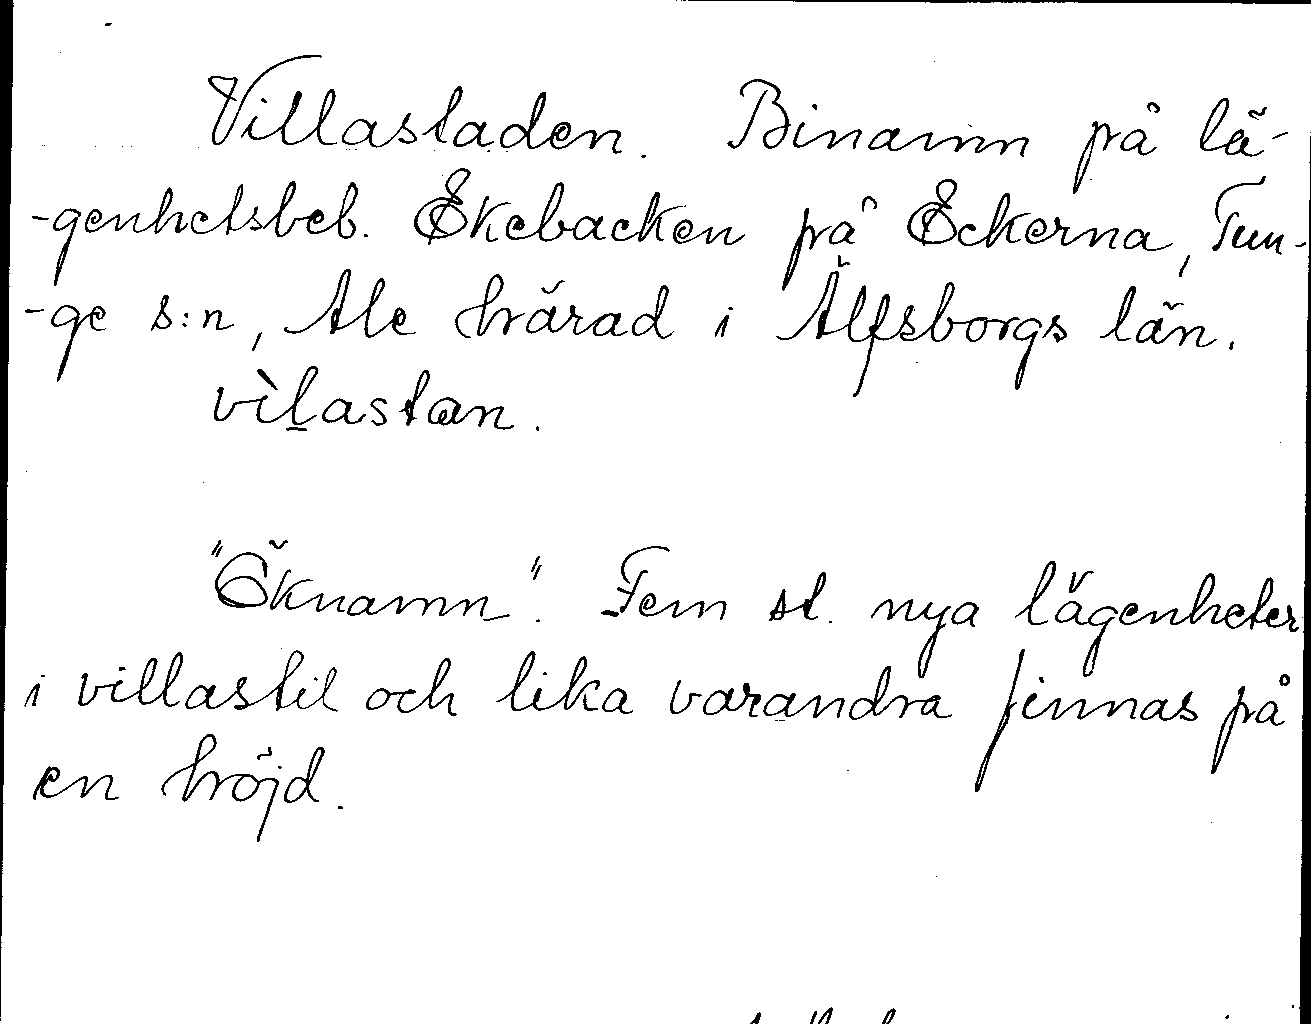 Villastaden. Binamn på lä-
-genhetsbeb. Ekebacken på Eckerna, Tun-
-ge s:n, Ale härad i Älfsborgs län.
vìlastan.
"Öknamn". Fem st. nya lägenheter
i villastil och lika varandra finnas på
en höjd.